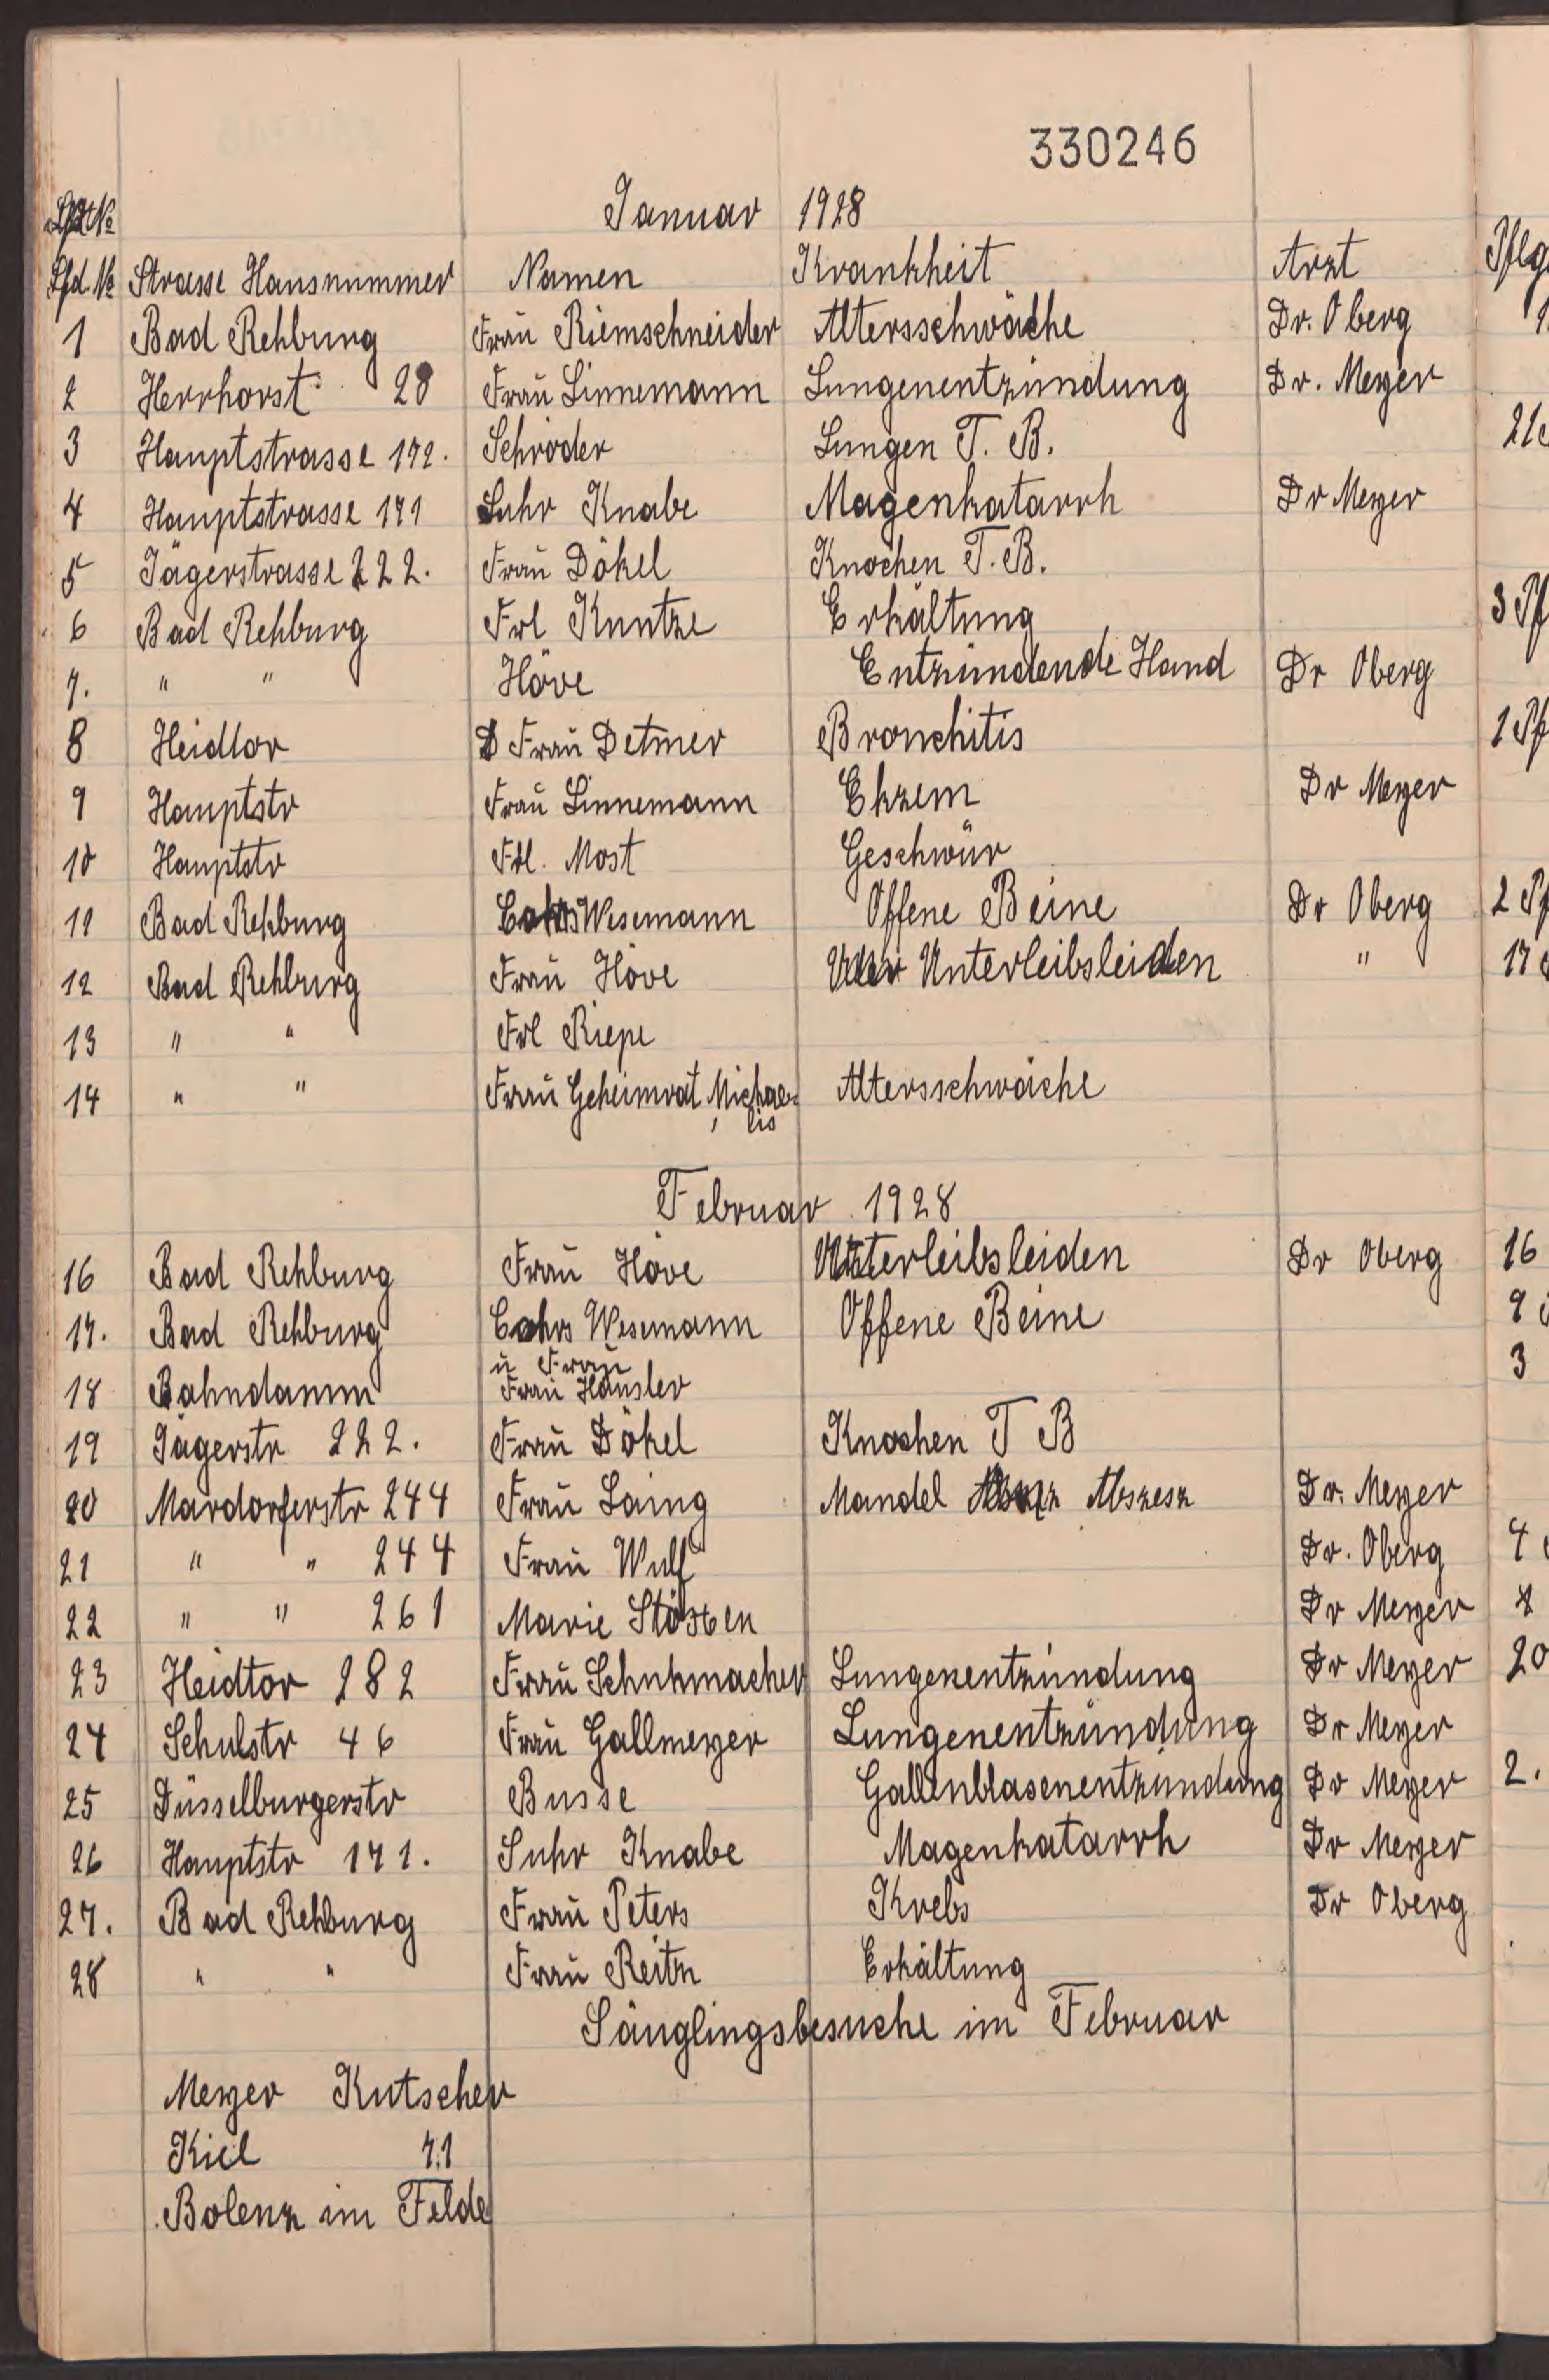 330246
Januar 1928
Lfd. № Strasse Hausnummer Namen Krankheit Arzt Pflg
1 Bad Rehburg Frau Riemschneider Altersschwäche Dr. Oberg 1
2 Herrhorst 28 Frau Linnemann Lungenentzündung Dr. Meyer
3 Hauptstrasse 172. Schröder Lungen T. B. 21
4 Hauptstrasse 171 Suhr Knabe Magenkatarrh Dr Meyer
5 Jägerstrasse 222. Frau Dökel Knochen T. B.
6 Bad Rehburg Frl Kuntze Erkältung 3 Pf
7. " " Höve Entzündende Hand Dr Oberg
8 Heidtor Frau Detmer Bronchitis 1 Pf
9 Hauptstr Frau Linnemann Ekzem Dr Meyer
10 Hauptstr Frl. Most Geschwür
11 Bad Rehburg Cahrs Wesemann Offene Beine Dr Oberg 2 Pf
12 Bad Rehburg Frau Höve Unterleibsleiden " 17
13 " " Frl Riepe
14 " " Frau Geheimrat Michae-
lis Altersschwäche
Februar 1928
16 Bad Rehburg Frau Höve Unterleibsleiden Dr Oberg 16
17. Bad Rehburg Cahrs Wesemann Offene Beine 9
u Frau 3
18 Bahndamm Frau Häusler
19 Jägerstr 222. Frau Dökel Knochen T B
20 Mardorferstr 244 Frau Laing Mandel Abszesz Dr. Meyer
21 " " 244 Frau Wulf Dr. Oberg 4
22 " " 261 Marie Dr Meyer
23 Heidtor 282 Frau Schuhmacher Lungenentzündung Dr Meyer 20
24 Schulstr 46 Frau Gallmeyer Lungenentzündung Dr Meyer
25 Düsselburgerstr Busse Gallenblasenentzündung Dr Meyer 2.
26 Hauptstr 171. Suhr Knabe Magenkatarrh Dr Meyer
27. Bad Rehburg Frau Peters Krebs Dr Oberg
28 " " Frau Reitz Erkältung
Säuglingsbesuche im Februar
Meyer Kutscher
Kiel 71
Bolenz im Felde